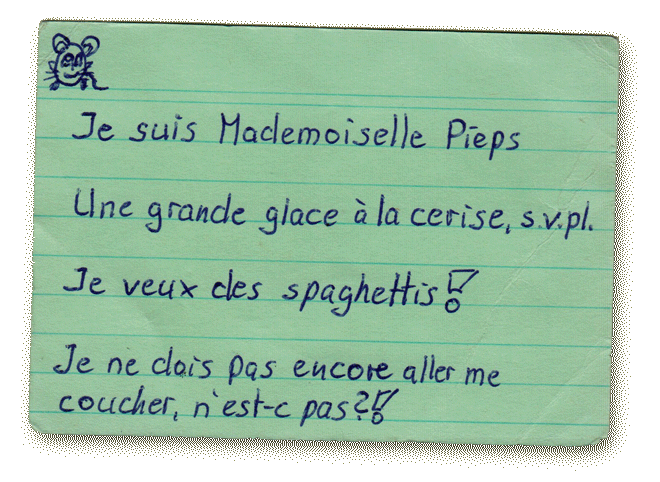 Je suis Mademoiselle Pieps
Une grande glace à la cerise, s.v.pl.
Je veux des spaghettis!
Je ne dois pas encore aller me
coucher, n'est-c pas?!